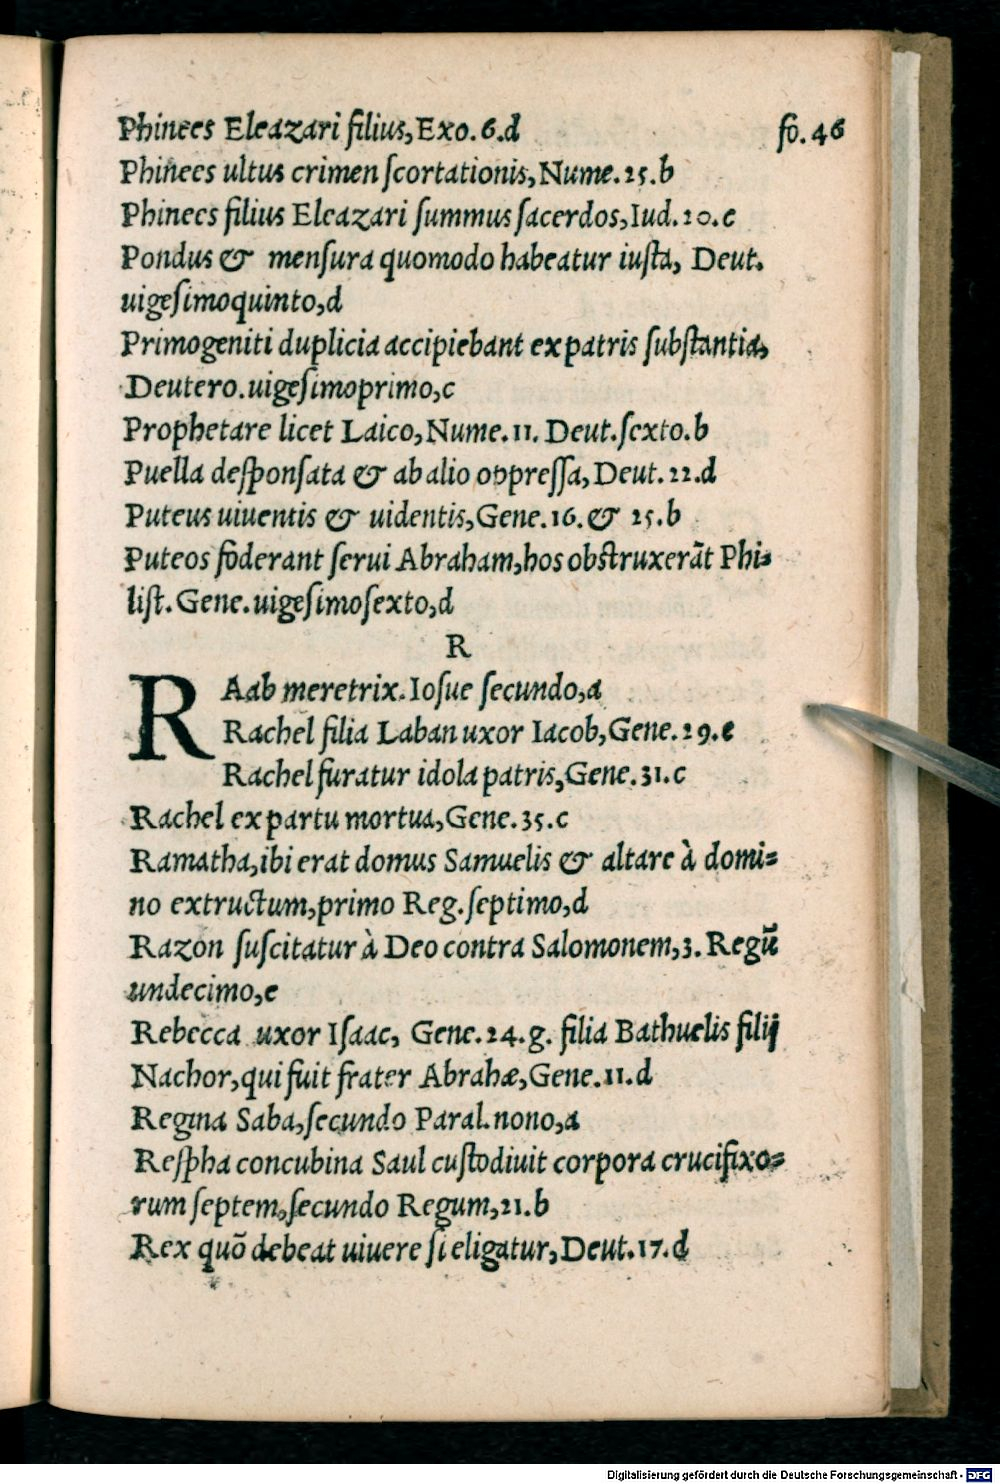 Phinees Eleazari filius, Exo. 6.d
fo. 46
Phinees ultus crimen ſcortationis, Nume. 25.b
Phinees filius Eleazari ſummus ſacerdos, Iud. 20. e
Pondus & menſura quomodo habeatur iuſta, Deut.
uigeſimoquinto, d
Primogeniti duplicia accipiebant ex patris ſubſtantia,
Deutero. uigeſimoprimo, c
Prophetare licet Laico, Nume. 11. Deut. ſexto. b
Puella deſponſata & ab alio oppreſſa, Deut. 22.d
Puteus uiuentis & uidentis, Gene. 16. & 25.b
Puteos foderant ſerui Abraham, hos obſtruxerãt Phi=
liſt. Gene. uigeſimoſexto, d
R
RAab meretrix. Ioſue ſecundo, a
Rachel filia Laban uxor Iacob, Gene. 29. e
Rachel furatur idola patris, Gene. 31. c
Rachel ex partu mortua, Gene. 35. c
Ramatha, ibi erat domus Samuelis & altare à domi=
no extructum, primo Reg. ſeptimo, d
Razon ſuſcitatur à Deo contra Salomonem, 3. Regũ
undecimo, e
Rebecca uxor Iſaac, Gene. 24. g. filia Bathuelis filij
Nachor, qui fuit frater Abrahæ, Gene. 11. d
Regina Saba, ſecundo Paral. nono, a
Reſpha concubina Saul cuſtodiuit corpora crucifixo=
rum ſeptem, ſecundo Regum, 21. b
Rex quõ debeat uiuere ſi eligatur, Deut. 17. d
Digitalisierung gefördert durch die Deutsche Forschungsgemeinschaft - DFG